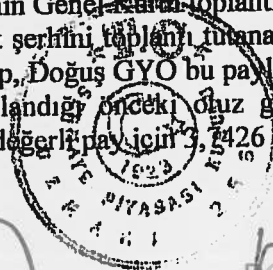 nin Genel Kurul toplant
t şerhini toplantı tutana
p, Doğuş GYO bu payl
landığı önceki otuz g
değerli pay için 3,7426
1923
PİYASASI